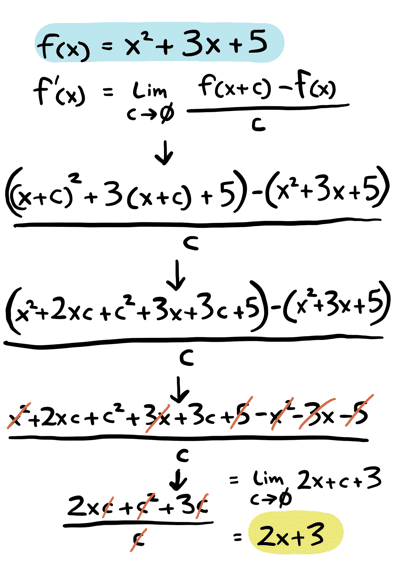 f(x) = x² + 3x + 5
f'(x) = Lim c→∅ f(x+c) - f(x) / c
↓
((x+c)² + 3(x+c) + 5) - (x² + 3x + 5) / c
↓
(x² + 2xc + c² + 3x + 3c + 5) - (x² + 3x + 5) / c
↓
x² + 2xc + c² + 3x + 3c + 5 - x² - 3x - 5 / c
↓
2xc + c² + 3c / c = Lim c→∅ 2x + c + 3
= 2x + 3